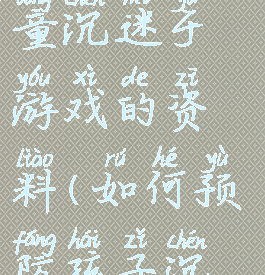 童沉迷于
yóu xì de zī
游戏的资
liào rú hé yù
料(如何预
fáng hái zǐ chén
防孩子沉